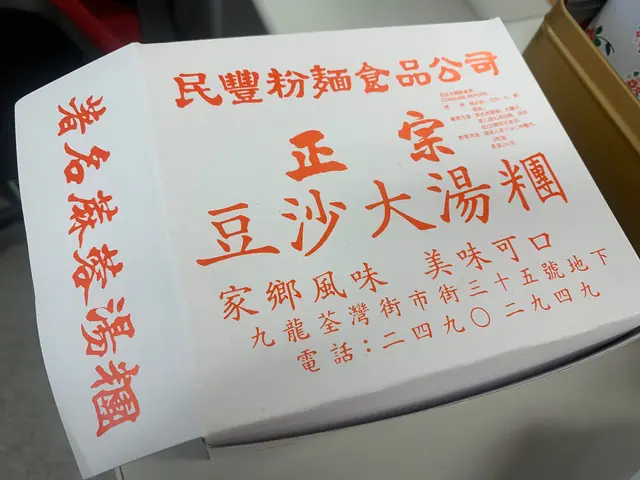 民豐粉麵食品公司
正宗
豆沙大湯糰
家鄉風味 美味可口
九龍荃灣街市街三十五號地下
電話：二四九〇二九四九
著名蔴蓉湯糰